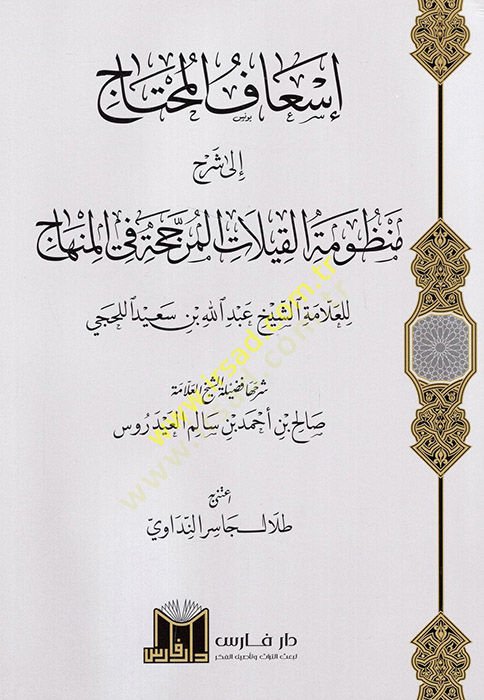 إسعاف المحتاج
يونس
إلى شرح
منظومة القيلات المرجحة في المنهاج
للعلامة الشيخ عبد الله بن سعيد اللحجي
شرحها فضيلة الشيخ العلامة
صالح بن أحمد بن سالم العيدروس
اعتنى به
طلال الجاسر النداوي
دار فارس
لبعث التراث وتأصيل الفكر
دار فارس
www.irsad.com.tr